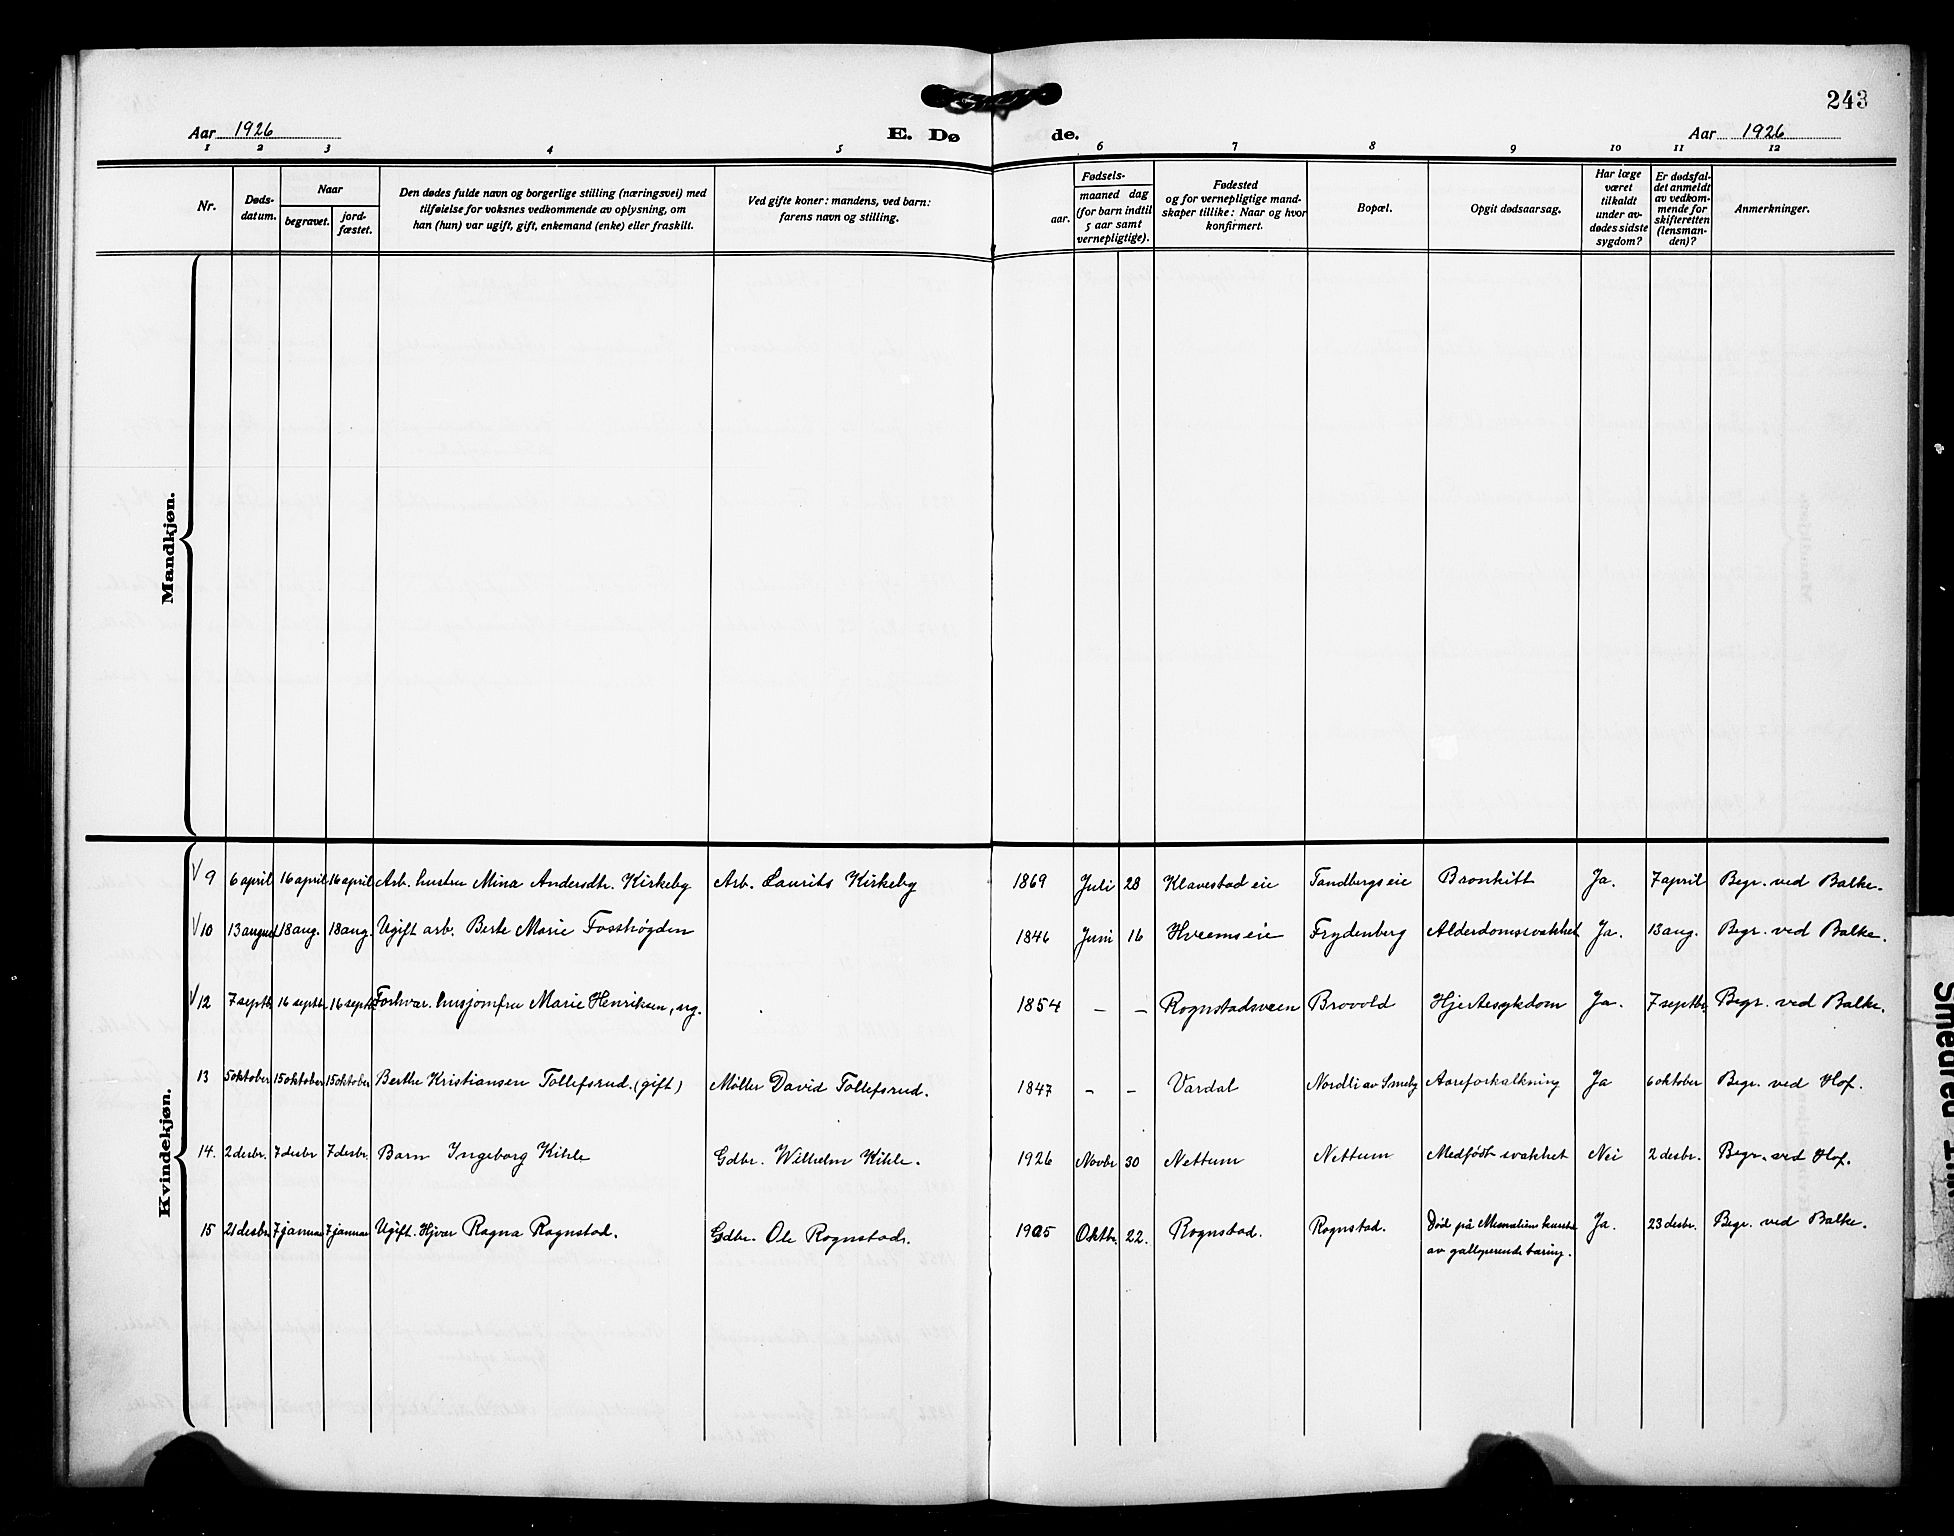 243
Aar 1926
E. Døde.
Aar 1926
1 2 3 4 5 6 7 8 9 10 11 12
Nr.
Døds-
datum.
Naar
begravet.
jord-
fæstet.
Den dødes fulde navn og borgerlige stilling (næringsvei) med
tilføielse for voksnes vedkommende av oplysning, om
han (hun) var ugift, gift, enkemand (enke) eller fraskilt.
Ved gifte koner: mandens, ved barn:
farens navn og stilling.
Fødsels-
aar.
maaned dag
(for barn indtil
5 aar samt
vernepligtige).
Fødested
og for vernepligtige mand-
skaper tillike: Naar og hvor
konfirmert.
Bopæl.
Opgit dødsaarsag.
Har læge
været
tilkaldt
under av-
dødes sidste
sygdom?
Er dødsfal-
det anmeldt
av vedkom-
mende for
skifteretten
(lensman-
den)?
Anmerkninger.
Mandkjøn.
Kvindekjøn.
√ 9 6 april 16 april 16 april Arb. hustru Mina Andersdtr. Kirkeby Arb. Laurits Kirkeby 1869 Juli 28 Klavestad eie Tandbergs eie Bronkitt Ja. 7 april Begr. ved Balke.
√ 10 13 august 18 aug. 18 aug. Ugift arb. Berte Marie Fosshøgden 1846 Juni 16 Hveems eie Frydenberg Alderdomssvakhet Ja. 13 aug. Begr. ved Balke.
√ 12 7 septbr. 16 septbr. 16 septbr. Forhvar. husjomfru Marie Henriksen, ug. 1854 – – Rognstadsveen Brovold Hjertesykdom Ja. 7 septbr. Begr. ved Balke.
13 5 oktober 15 oktober 15 oktober Berthe Kristiansen Tollefsrud. (gift) Møller David Tollefsrud. 1847 – – Vardal Nordli av Smeby Aareforkalkning Ja 6 oktober Begr. ved Hof.
14. 2 desbr. 7 desbr 7 desbr. Barn Ingeborg Kihle Gdbr. Wilhelm Kihle. 1926 Novbr 30 Nettum Nettum Medfødt svakhet Nei 2 desbr. Begr. ved Hof.
15 21 desbr. 7 januar 7 januar Ugift. Hjvær Ragna Rognstad. Gdbr. Ole Rognstad. 1905 Oktbr. 22. Rognstad. Rognstad. Død på Mesnalien kursted Ja. 23 desbr. Begr. ved Balke.
av galloperende tæring.
Smedred